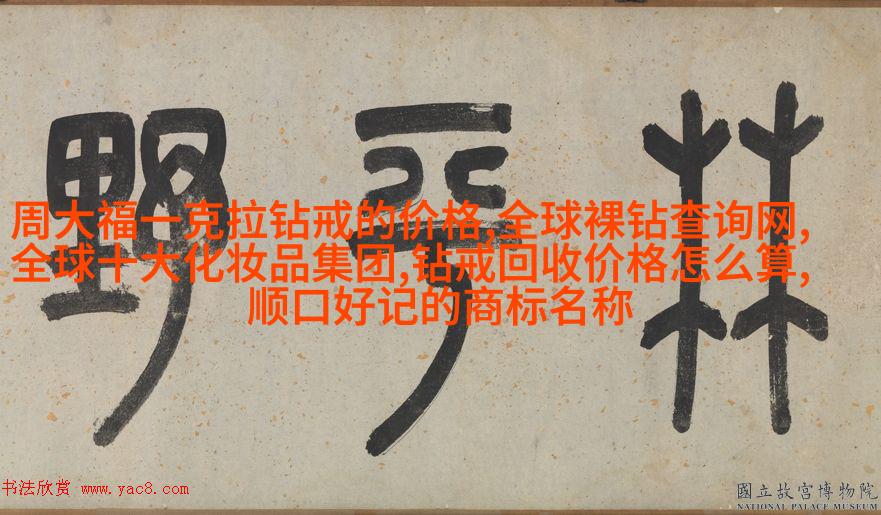 林平野
周大福一克拉钻戒的价格,全球裸钻查询网,
全球十大化妆品集团,钻戒回收价格怎么算,
顺口好记的商标名称
书法欣赏 www.yac8.com
國立故宮博物院
NATIONAL PALACE MUSEUM